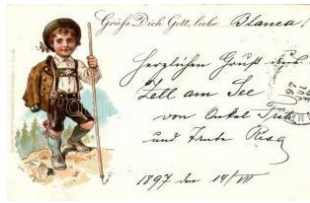 Grüß Dich Gott, liebe Blanca!
Herzlichen Gruß aus
Zell am See
von Onkel
und Tante Risa
1897 den 14/VII